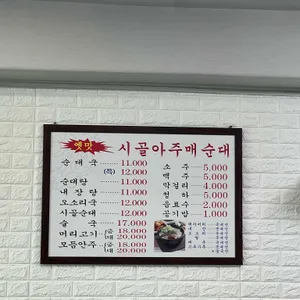 옛맛 시골아주매순대
순대국 11.000
(특) 12.000
순대탕 11.000
내장탕 11.000
오소리국 12.000
시골순대 12.000
술국 17.000
머리고기 (중 18.000
대 20.000
모듬안주 (중 18.000
대 20.000
소주 5.000
맥주 5.000
막걸리 4.000
청하 5.000
음료수 2.000
공기밥 1.000